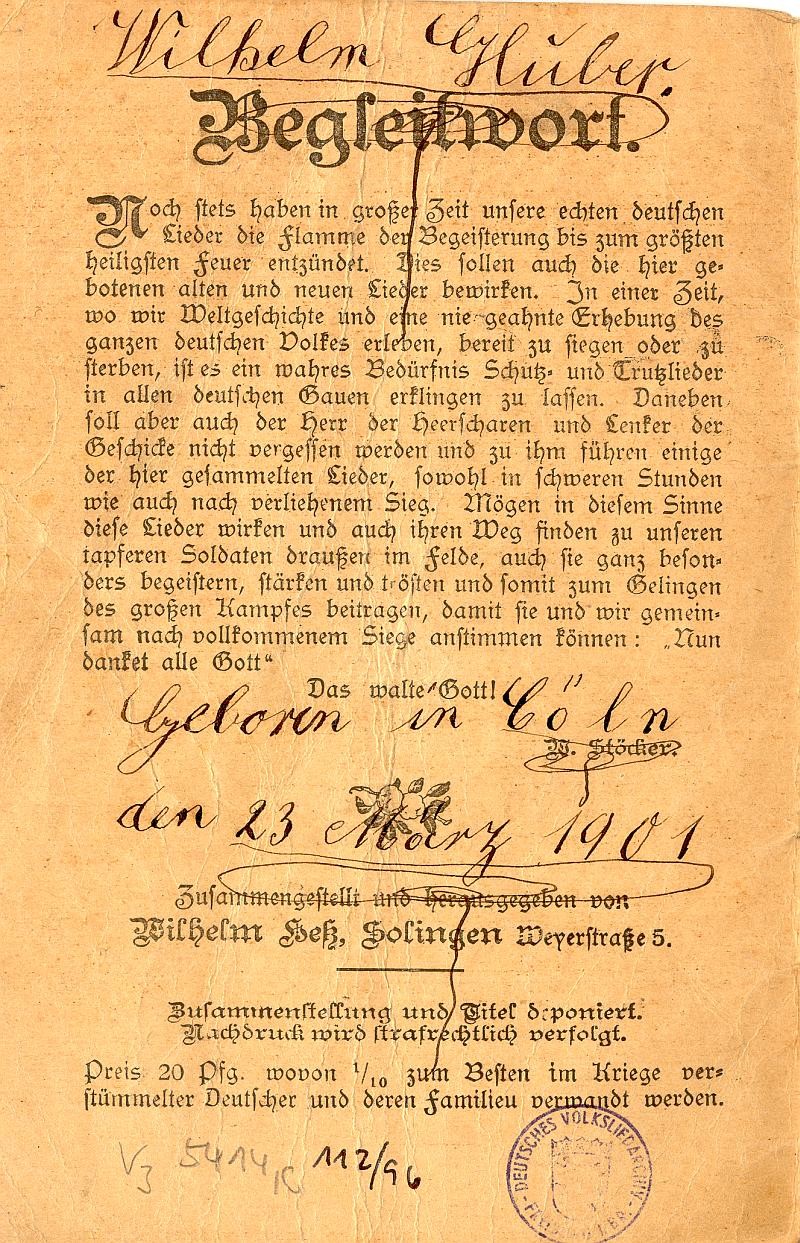 Wilhelm Huber.
Begleitwort.
Noch stets haben in großer Zeit unsere echten deutschen
Lieder die Flamme der Begeisterung bis zum größten
heiligsten Feuer entzündet. Dies sollen auch die hier ge-
botenen alten und neuen Lieder bewirken. In einer Zeit,
wo wir Weltgeschichte und eine nie geahnte Erhebung des
ganzen deutschen Volkes erleben, bereit zu siegen oder zu
sterben, ist es ein wahres Bedürfnis Schutz- und Trutzlieder
in allen deutschen Gauen erklingen zu lassen. Daneben
soll aber auch der Herr der Heerscharen und Lenker der
Geschicke nicht vergessen werden und zu ihm führen einige
der hier gesammelten Lieder, sowohl in schweren Stunden
wie auch nach verliehenem Sieg. Mögen in diesem Sinne
diese Lieder wirken und auch ihren Weg finden zu unseren
tapferen Soldaten draußen im Felde, auch sie ganz beson-
ders begeistern, stärken und trösten und somit zum Gelingen
des großen Kampfes beitragen, damit sie und wir gemein-
sam nach vollkommenem Siege anstimmen können: „Nun
danket alle Gott“
Das walte Gott!
Geboren in Cöln
W. Stöcker.
den 23 März 1901
Zusammengestellt und herausgegeben von
Wilhelm Heß, Solingen Weyerstraße 5.
Zusammenstellung und Titel deponiert.
Nachdruck wird strafrechtlich verfolgt.
Preis 20 Pfg. wovon 1/10 zum Besten im Kriege ver-
stümmelter Deutscher und deren Familieu verwandt werden.
V3 5414 112/96
DEUTSCHES VOLKSLIEDARCHIV